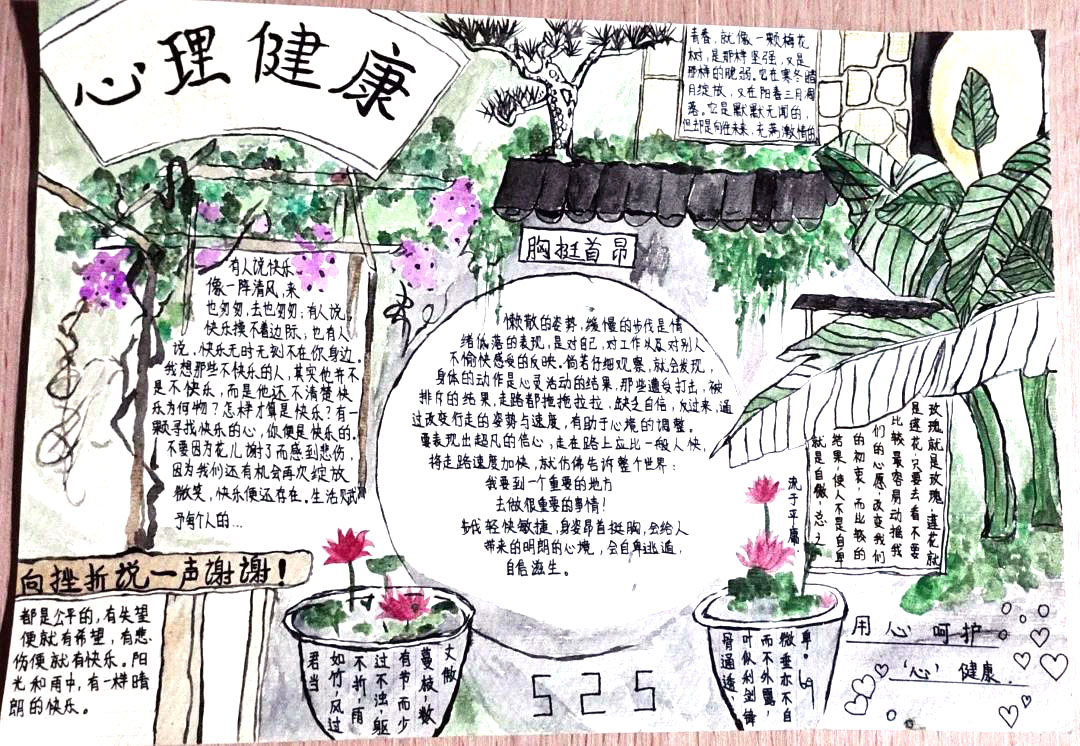 心理健康
青春，就像一颗梅花
树，是那样坚强，又是
那样的脆弱。它在寒冬腊
月绽放，又在阳春三月凋
落。它是默默无闻的，
但却是向往未来，充满激情的
胸挺首昂
有人说快乐
像一阵清风，来
也匆匆，去也匆匆；有人说，
快乐摸不着边际，也有人
说，快乐无时无刻不在你身边。
我想那些不快乐的人，其实他并不
是不快乐，而是他还不清楚快
乐为何物？怎样才算是快乐？有一
颗寻找快乐的心，你便是快乐的。
不要因为花儿谢了而感到悲伤，
因为我们还有机会再次绽放
微笑，快乐便还存在。生活赋
予每个人的...
向挫折说一声谢谢！
都是公平的，有失望
便就有希望，有悲
伤便就有快乐。阳
光和雨中，有一样晴
朗的快乐。
懒散的姿势，缓慢的步伐是情
绪低落的表现，是对自己，对工作以及对别人
不愉快感受的反映。倘若仔细观察，就会发现，
身体的动作是心灵活动的结果，那些遭受打击，被
排斥的结果，走路都拖拖拉拉，缺乏自信，反过来，通
过改变行走的姿势与速度，有助于心境的调整。
要表现出超凡的信心，走在路上应比一般人快，
将走路速度加快，就仿佛告诉整个世界：
我要到一个重要的地方
去做很重要的事情！
步伐轻快敏捷，身姿昂首挺胸，会给人
带来的明朗的心境，会自卑逃遁，
自信滋生。
玫瑰就是玫瑰，莲花就
是莲花，只要去看，不要
比较，最容易动摇我
们的心愿，改变我们
的初衷，而比较的
结果，使人不是自卑
就是自傲，总之
流于平庸。
丈傲
蔓枝，数
有节而少
过不浊，躯
不折，雨
如竹，风过
君当
卑。
微垂亦不自
而不外露，
叶似利剑锋
骨通透，
525
用心呵护
‘心’健康.